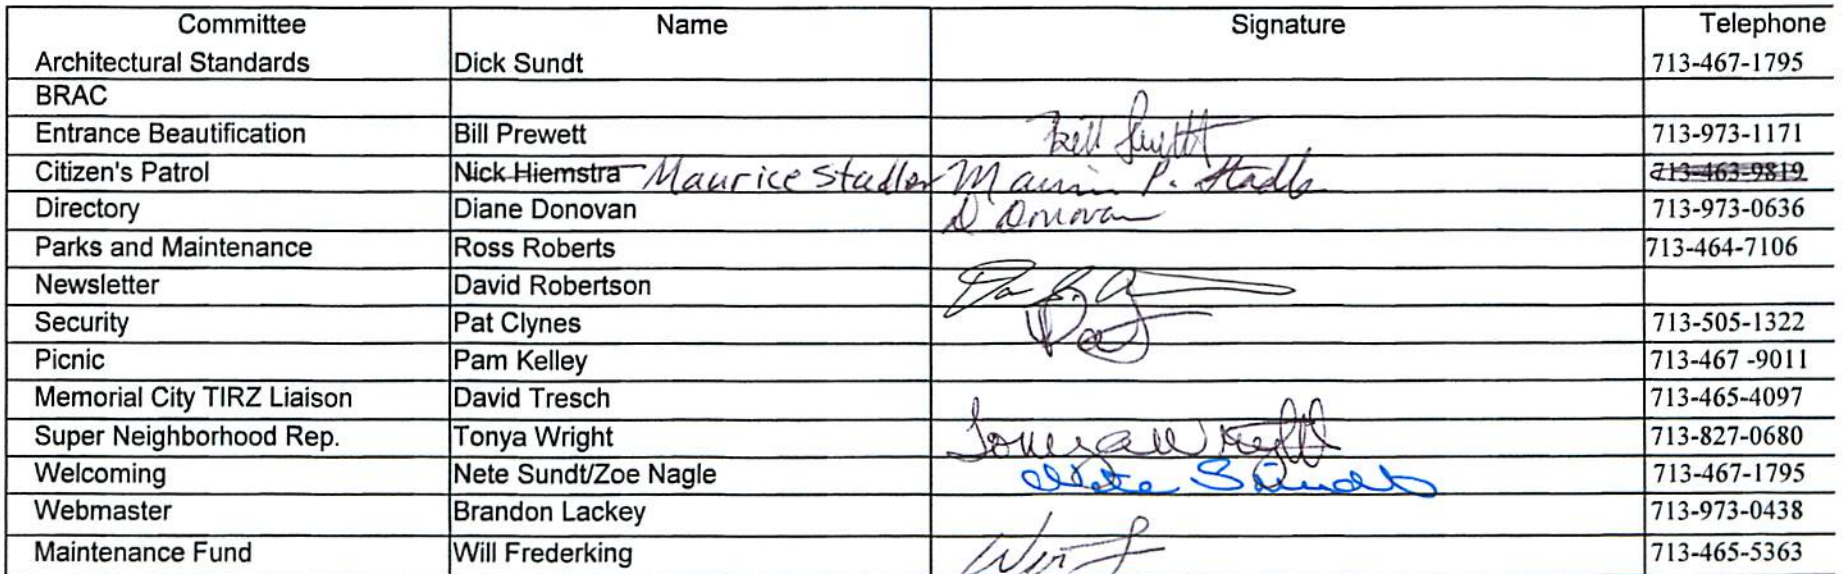 Committee Name Signature Telephone
Architectural Standards Dick Sundt 713-467-1795
BRAC
Entrance Beautification Bill Prewett Bill Prewett 713-973-1171
Citizen's Patrol Nick Hiemstra Maurice Stadler Maurice P. Stadler 713-463-9819
Directory Diane Donovan D Donovan 713-973-0636
Parks and Maintenance Ross Roberts 713-464-7106
Newsletter David Robertson
Security Pat Clynes Pat 713-505-1322
Picnic Pam Kelley 713-467 -9011
Memorial City TIRZ Liaison David Tresch 713-465-4097
Super Neighborhood Rep. Tonya Wright Tonya Wright 713-827-0680
Welcoming Nete Sundt/Zoe Nagle Nete Sundt 713-467-1795
Webmaster Brandon Lackey 713-973-0438
Maintenance Fund Will Frederking 713-465-5363